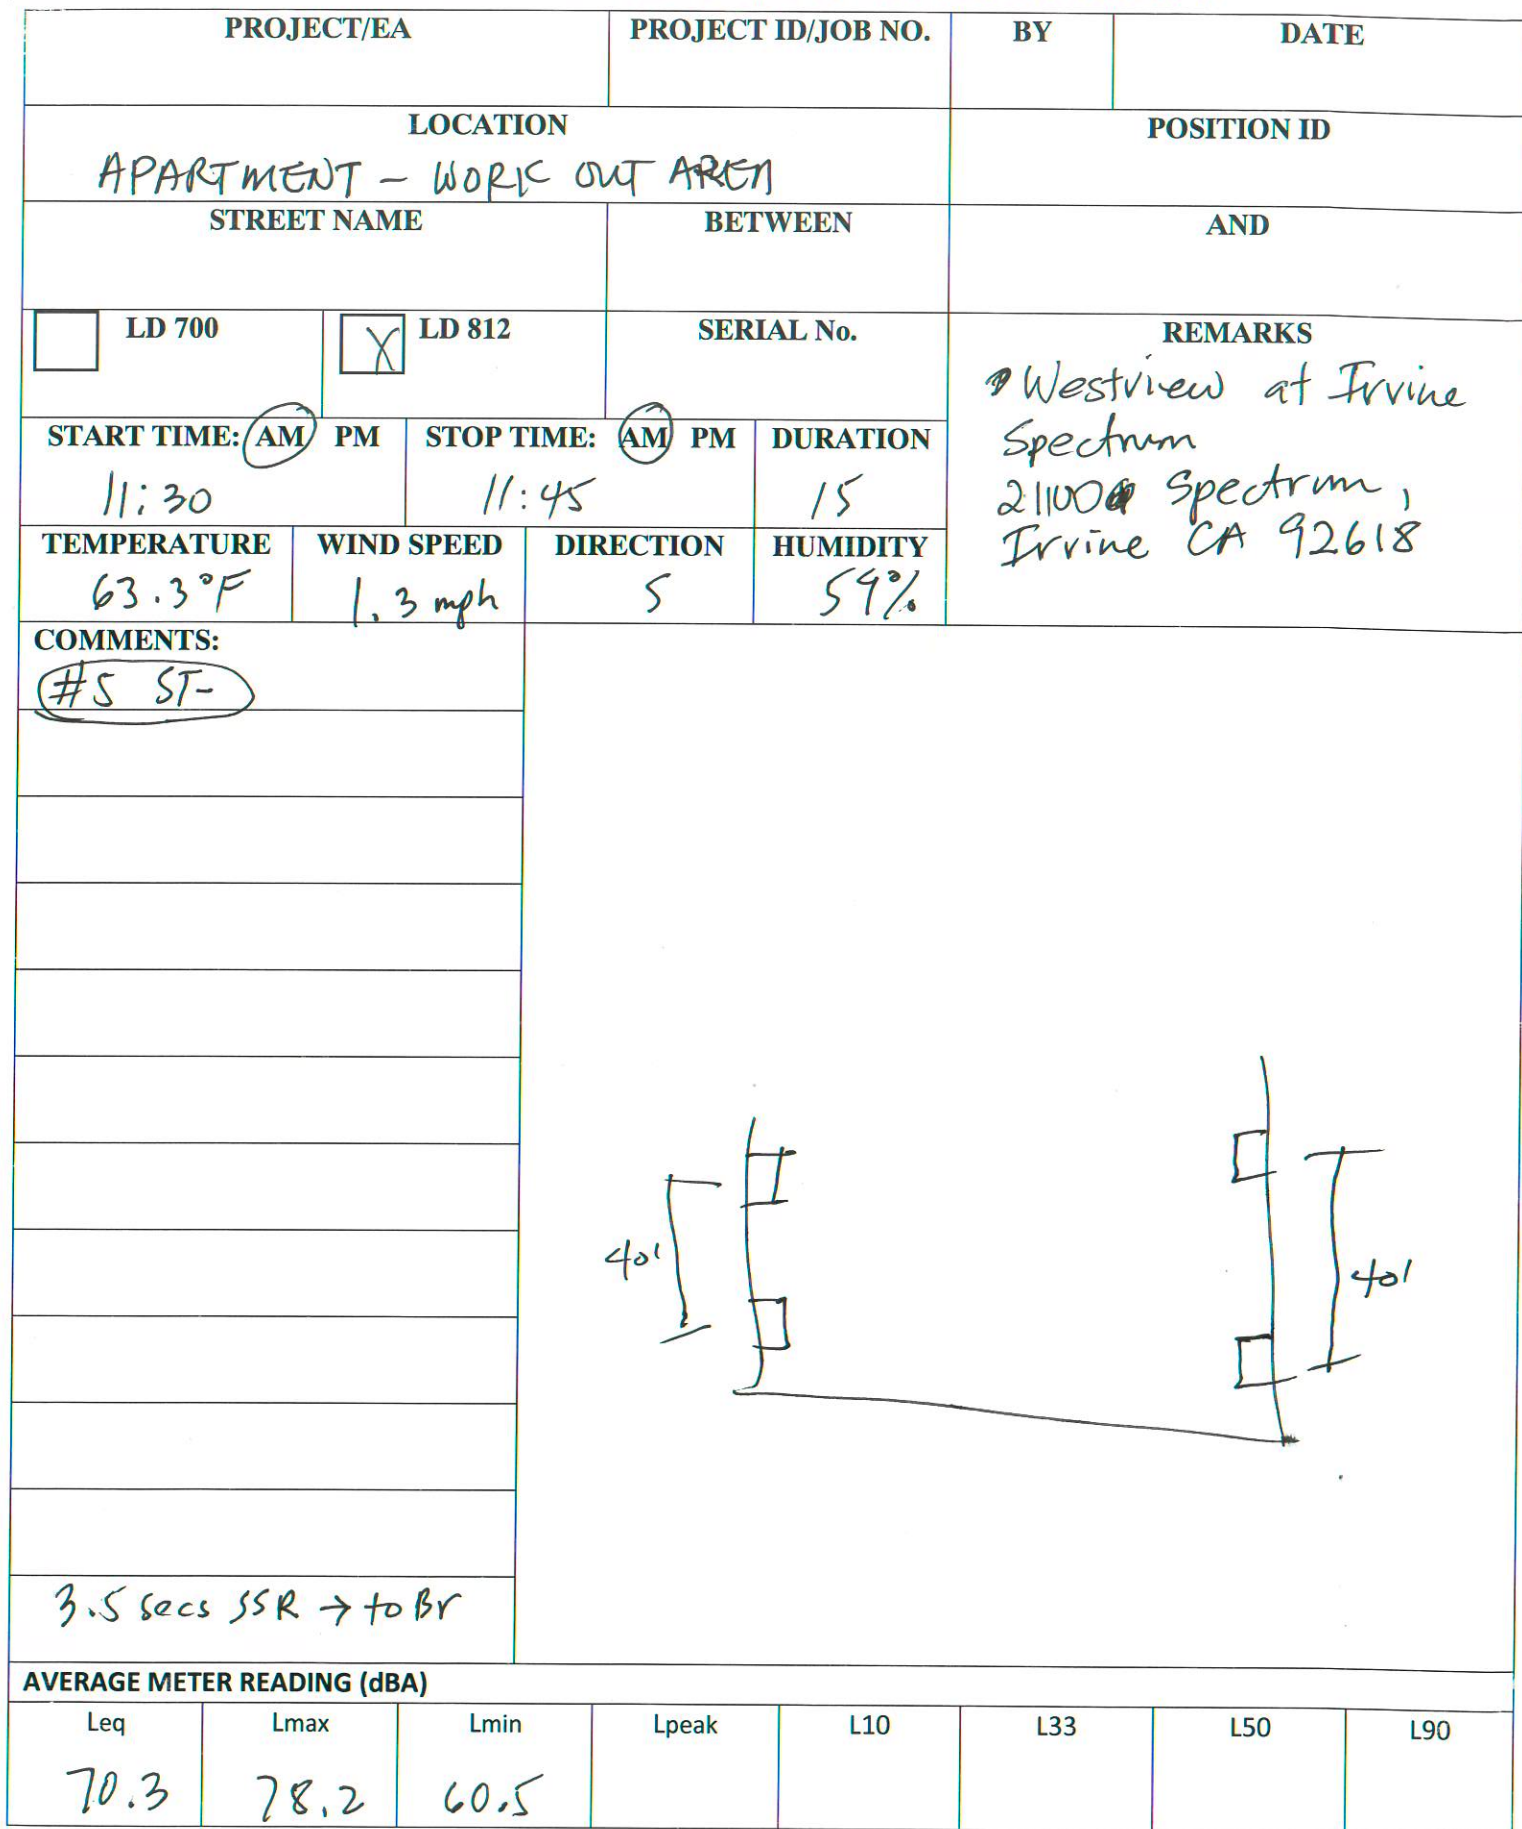 PROJECT/EA PROJECT ID/JOB NO. BY DATE
LOCATION POSITION ID
APARTMENT - WORK OUT AREA
STREET NAME BETWEEN AND
LD 700 X LD 812 SERIAL No. REMARKS
Westview at Irvine
Spectrum
21100 Spectrum,
Irvine CA 92618
START TIME: AM PM STOP TIME: AM PM DURATION
11:30 11:45 15
TEMPERATURE WIND SPEED DIRECTION HUMIDITY
63.3°F 1.3 mph S 59%
COMMENTS:
#5 ST-
40'
40'
3.5 secs SSR → to Br
AVERAGE METER READING (dBA)
Leq Lmax Lmin Lpeak L10 L33 L50 L90
70.3 78.2 60.5